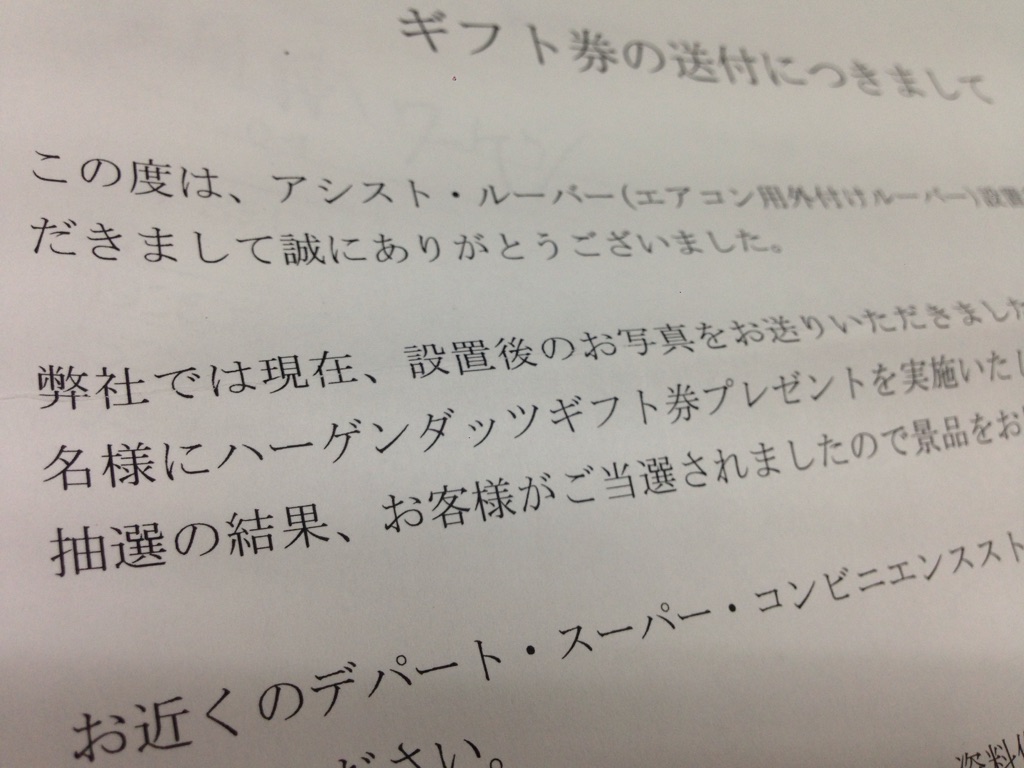 ギフト券の送付につきまして
この度は、アシスト・ルーバー(エアコン用外付けルーバー)設置
だきまして誠にありがとうございました。
弊社では現在、設置後のお写真をお送りいただきました
名様にハーゲンダッツギフト券プレゼントを実施いたし
抽選の結果、お客様がご当選されましたので景品をお
お近くのデパート・スーパー・コンビニエンススト
ださい。
資料